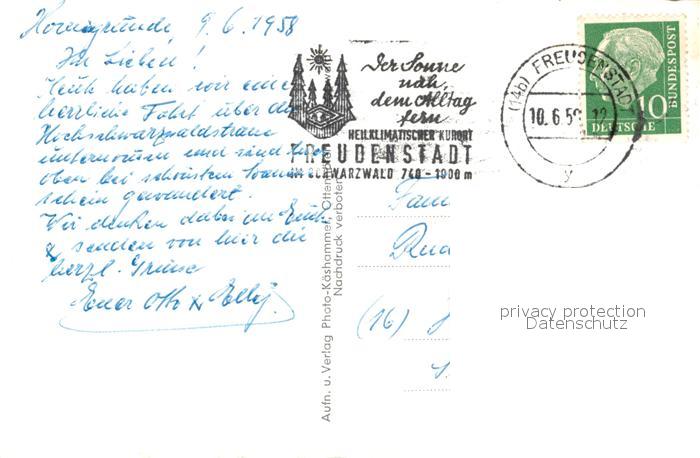 Hornisgrinde 9.6.1958
Ihr Lieben!
Heute haben wir eine
herrliche Fahrt über die
Hochschwarzwaldstrasse
unternommen und sind hier
oben bei schönstem Sonnen
schein gewandert.
Wir denken dabei an Euch
& senden von hier die
herzl. Grüsse
Euer Otto & Elly.
Der Sonne
nah,
dem Alltag
fern
HEILKLIMATISCHER KURORT
FREUDENSTADT
IM SCHWARZWALD 740-1000 m
(14b) FREUDENSTADT
10.6.58
y
10
DEUTSCHE
BUNDESPOST
Aufn. u. Verlag Photo-Käshammer,
Nachdruck verboten
Fam
Rud
(16)
privacy protection
Datenschutz